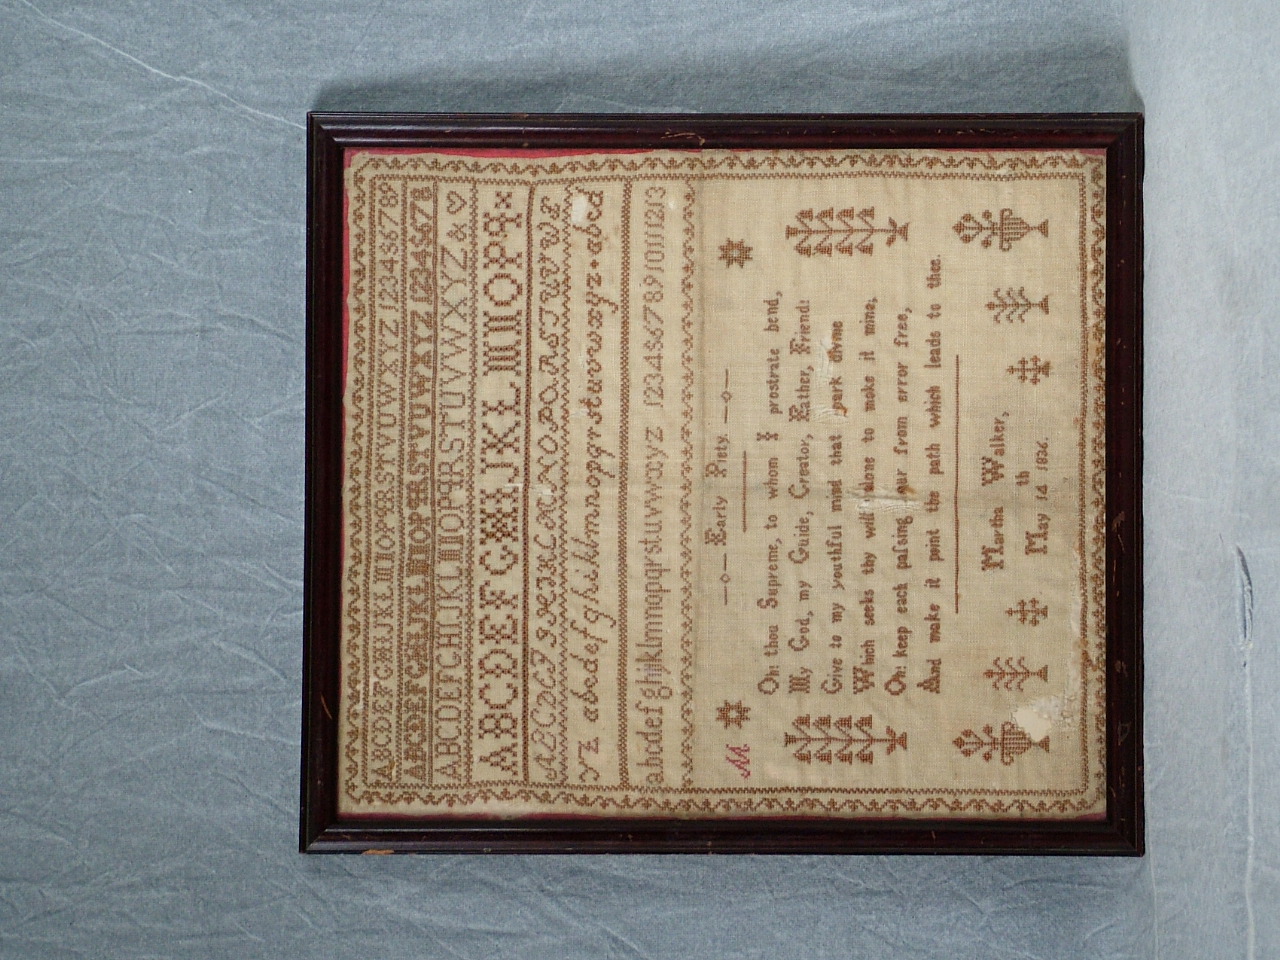 ABCDEFGHIJKLMNOPQRSTVUWXYZ 123456789
ABCDEFGHIJKLMNOPQRSTVUWXYZ 12345678
ABCDEFGHIJKLMNOPQRSTUVWXYZ &
ABCDEFGHIJKLMNOPQ
YZ abcdefghiklmnopqrstuvwxyz abcd
abcdefghijklmnopqrstuvwxyz 12345678910111213
Early Piety.
Oh! thou Supreme, to whom I prostrate bend,
My God, my Guide, Creator, Father, Friend!
Give to my youthful mind that park divine
Which seeks thy will alone to make it mine,
Oh! keep each paſsing our from error free,
And make it point the path which leads to thee.
Martha Walker,
May 14th 1826.